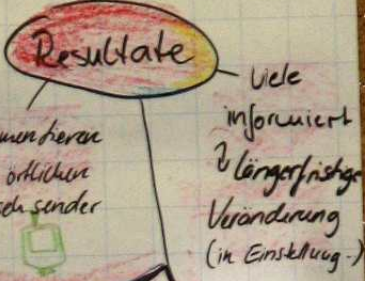 Resultate
mentieren
örtlichen
sender
Viele
informiert
längerfristige
Veränderung
(in Einstellung.)